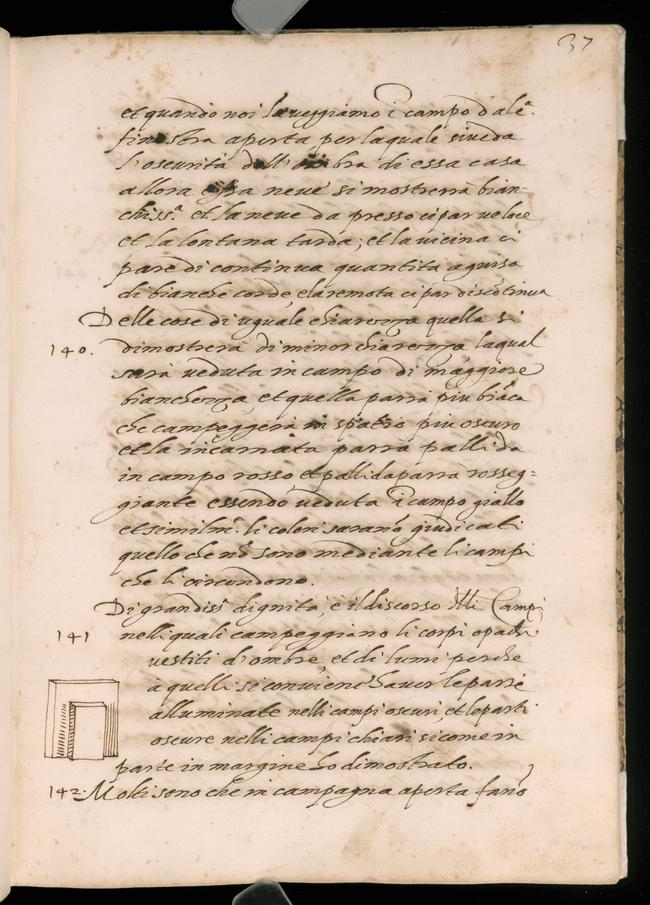 37
et quando noi la veggiamo ī campo d'alc.ª
finestra aperta per laquale si veda
l'oscurità dell'ombra di essa casa
allora essa neve si mostrerrà bian-
chiss.ª et la neve da presso ci par veloce
et la lontana tarda; et la vicina ci
pare di continua quantità a guisa
di bianche corde, e la remota ci par discōtinua
Delle cose di uguale chiarezza quella si
140. dimostrerà di minor chiarezza laqual
sarà veduta in campo di maggiore
bianchezza, et quella parrà più biāca
che campeggerà in spatio più oscuro
et la incarnata parrà pallida
in campo rosso et pallida parrà rosseg=
giante essendo veduta ī campo giallo
et similm.te li colori sarano giudicati
quello che nō sono mediante li campi
che li circondono.
Di grandiss.ª dignità, è il discorso delli Campi
141 nelli quali campeggiano li corpi opachi
vestiti d'ombre, et di lumi perche
à quelli si conviene haver le parte
alluminate nelli campi oscuri, et le parti
oscure nelli campi chiari si come in
parte in margine ho dimostrato.
142. Molti sono che in campagna aperta fano